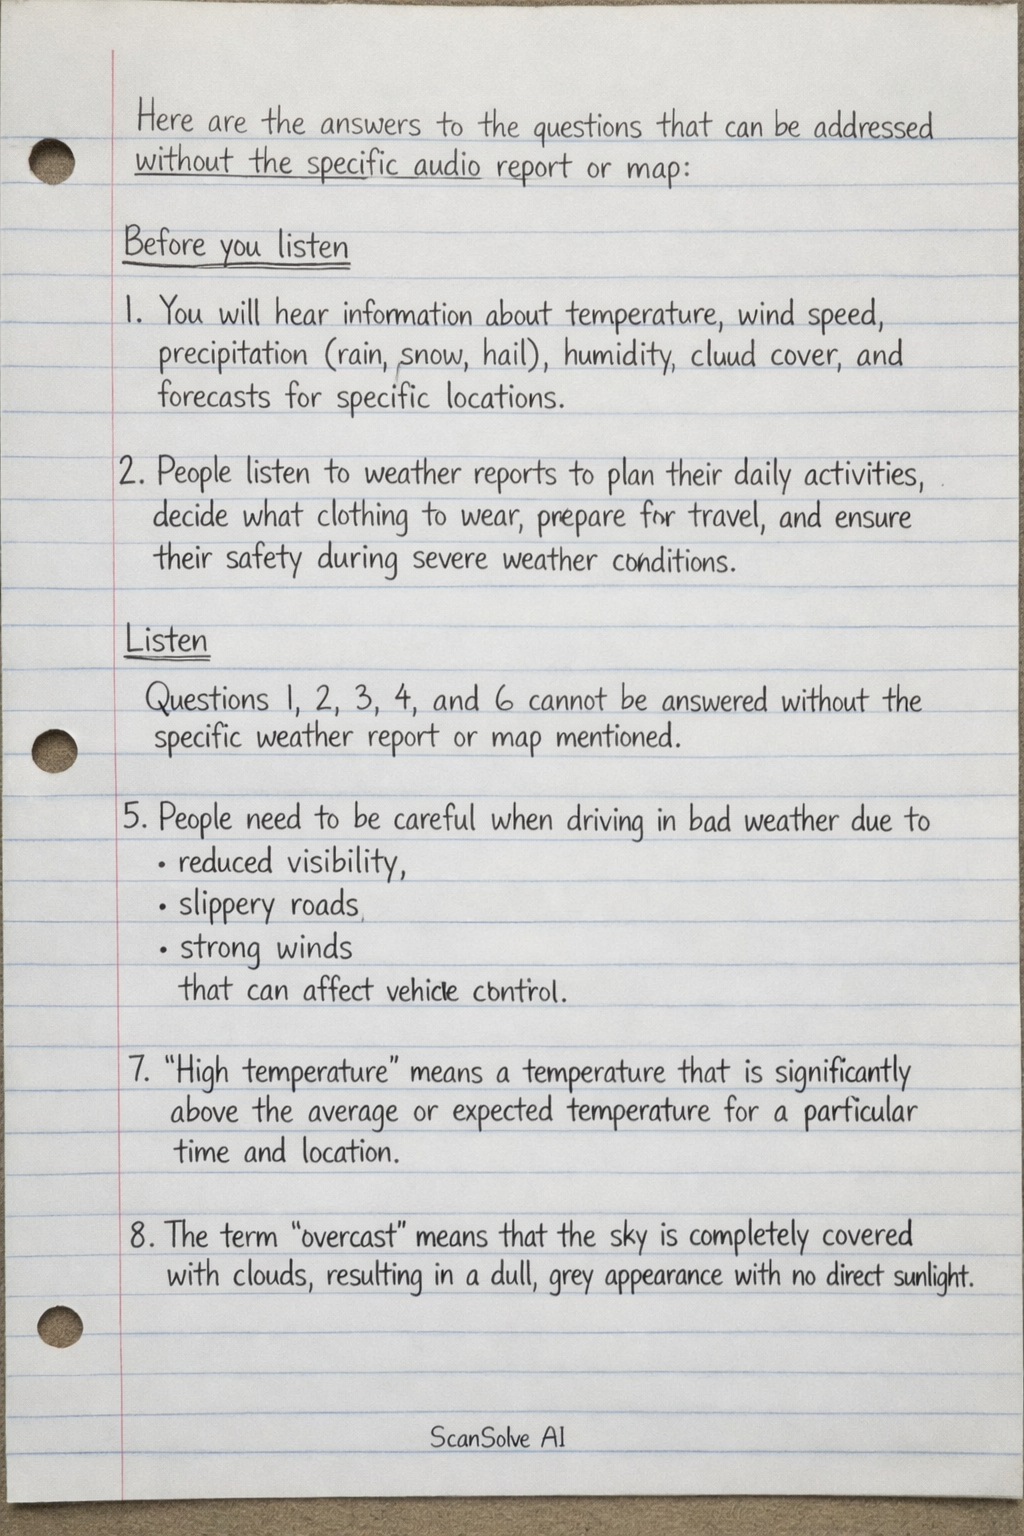 Here are the answers to the questions that can be addressed
without the specific audio report or map:
Before you listen
1. You will hear information about temperature, wind speed,
precipitation (rain, snow, hail), humidity, cluud cover, and
forecasts for specific locations.
2. People listen to weather reports to plan their daily activities,
decide what clothing to wear, prepare for travel, and ensure
their safety during severe weather conditions.
Listen
Questions 1, 2, 3, 4, and 6 cannot be answered without the
specific weather report or map mentioned.
5. People need to be careful when driving in bad weather due to
• reduced visibility,
• slippery roads,
• strong winds
that can affect vehicle control.
7. "High temperature" means a temperature that is significantly
above the average or expected temperature for a particular
time and location.
8. The term "overcast" means that the sky is completely covered
with clouds, resulting in a dull, grey appearance with no direct sunlight.
ScanSolve AI